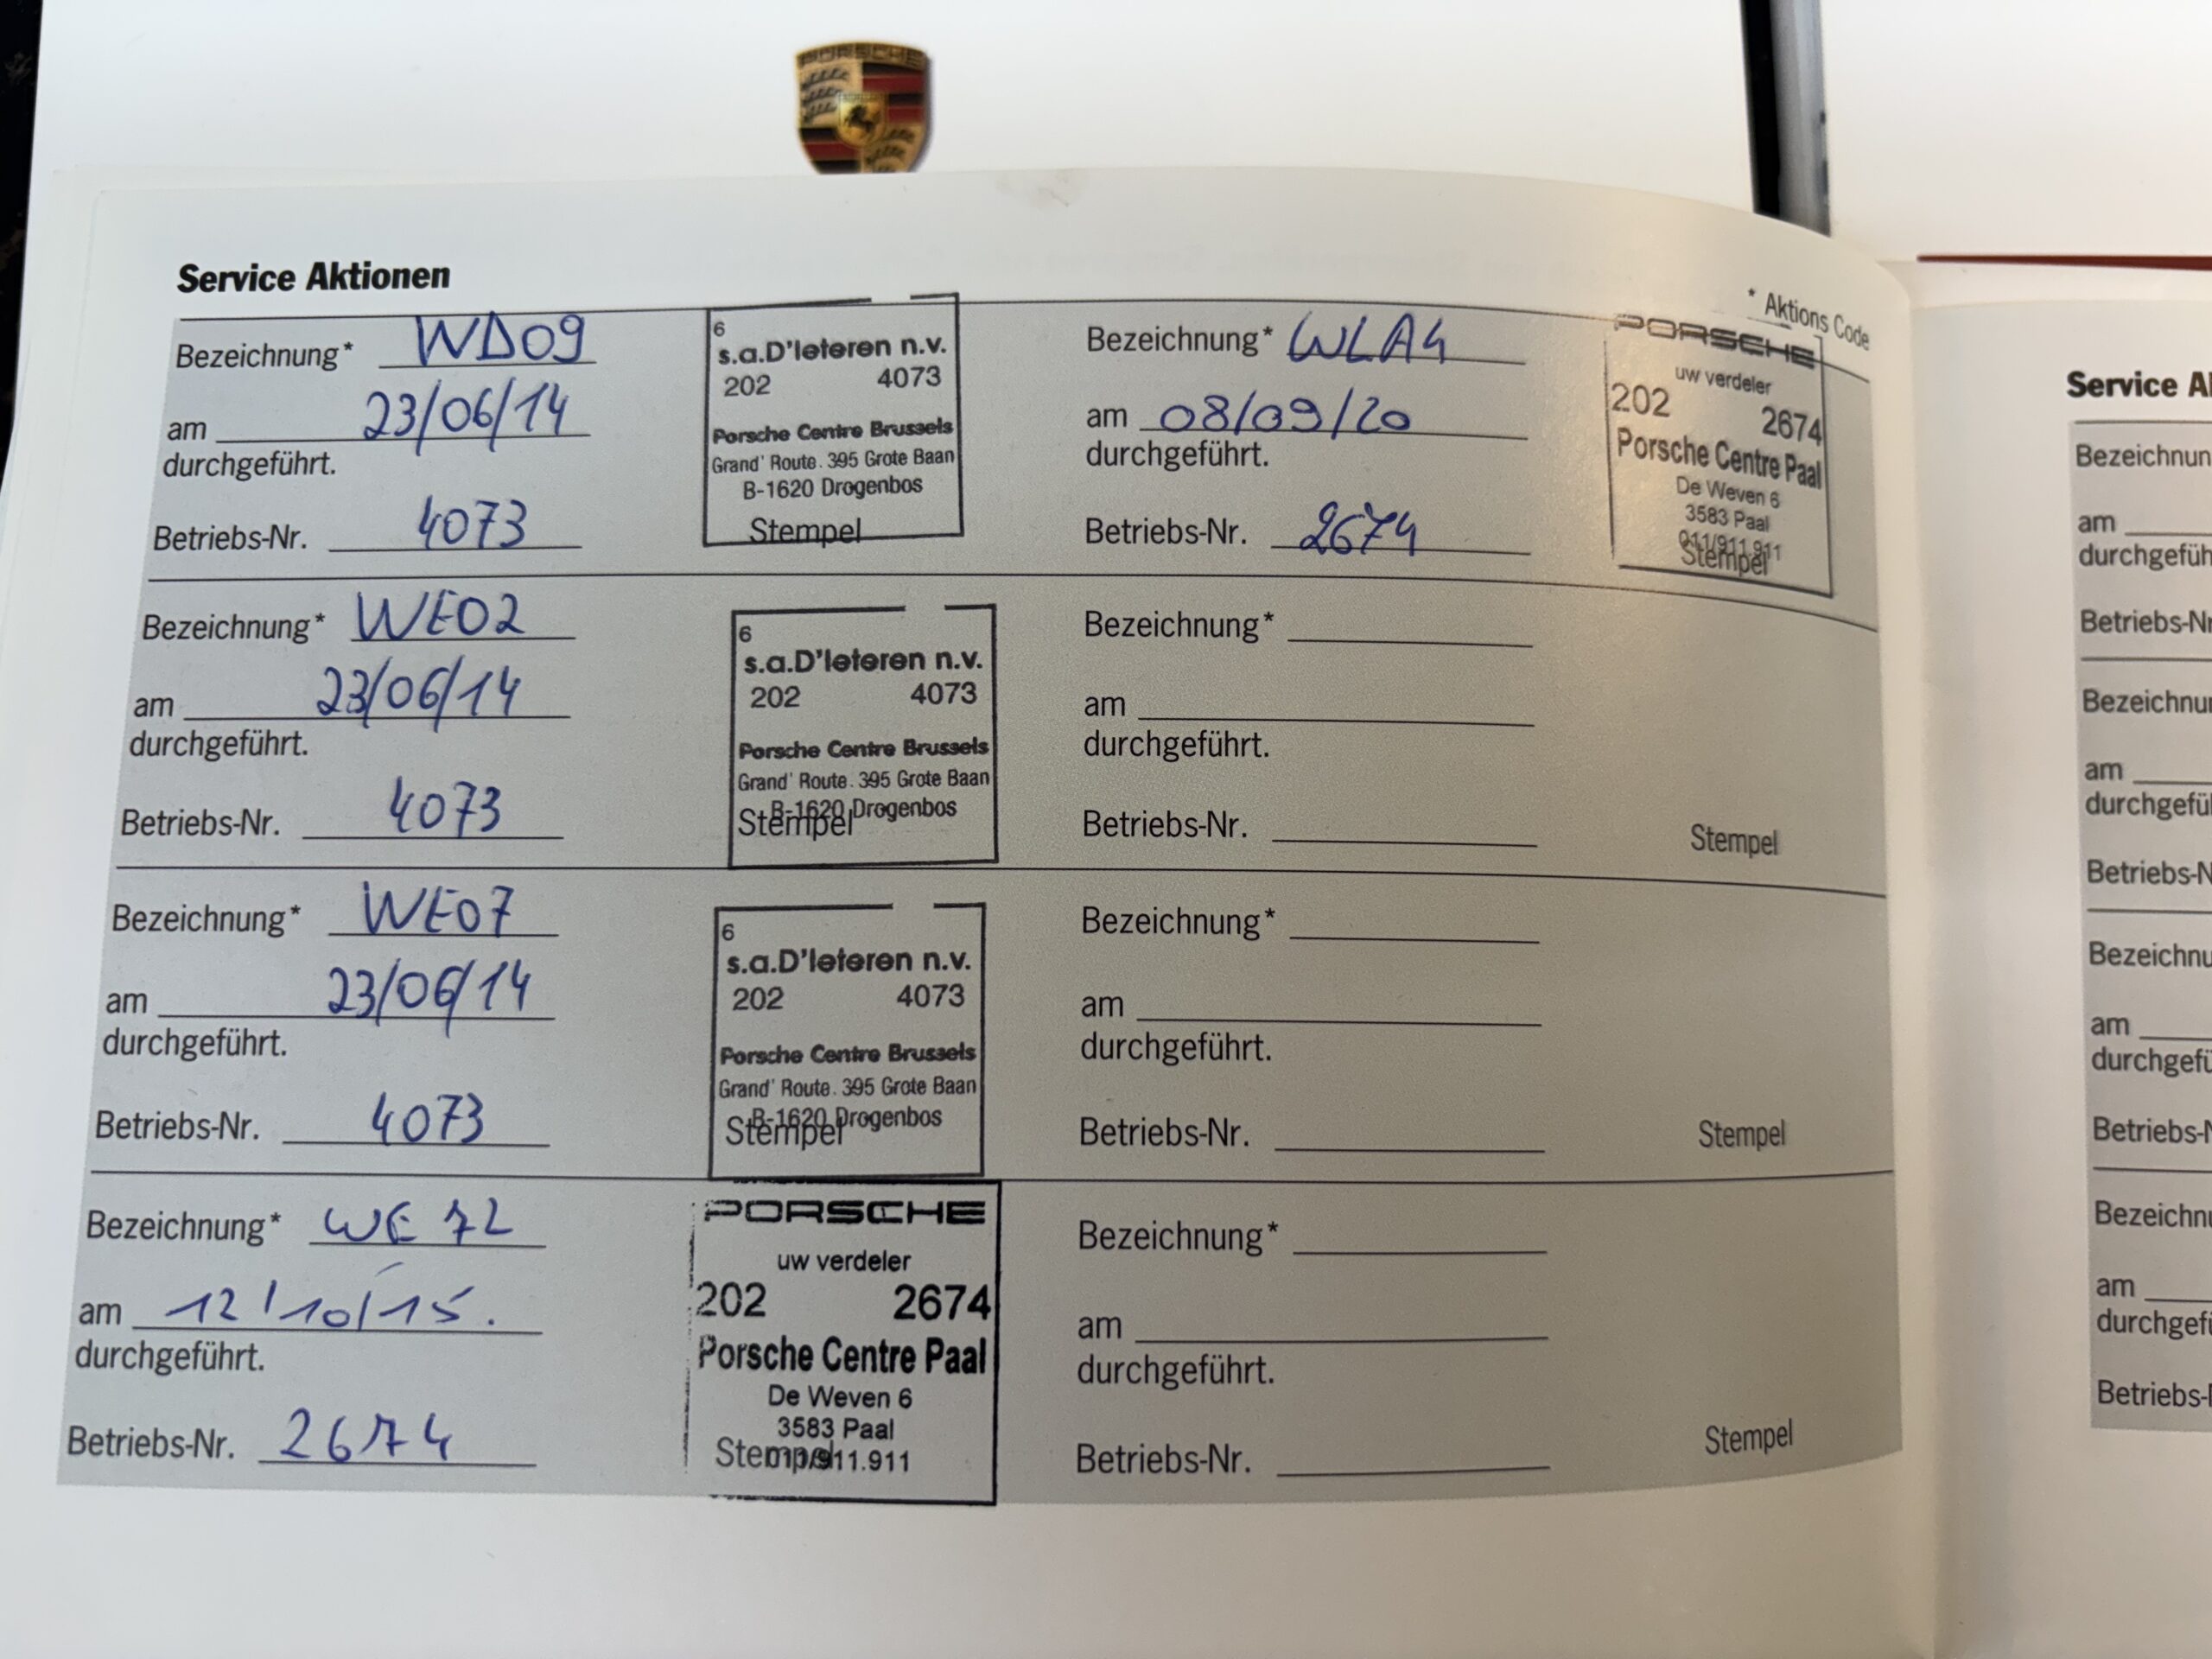 PORSCHE
Service Aktionen
* Aktions Code
Bezeichnung* WD09
am 23/06/14
durchgeführt.
Betriebs-Nr. 4073
6
s.a.D'Ieteren n.v.
202 4073
Porsche Centre Brussels
Grand' Route. 395 Grote Baan
B-1620 Drogenbos
Stempel
Bezeichnung* WLA4
am 08/09/20
durchgeführt.
Betriebs-Nr. 2674
PORSCHE
uw verdeler
202 2674
Porsche Centre Paal
De Weven 6
3583 Paal
011/911.911
Stempel
Bezeichnung* WE02
am 23/06/14
durchgeführt.
Betriebs-Nr. 4073
6
s.a.D'Ieteren n.v.
202 4073
Porsche Centre Brussels
Grand' Route. 395 Grote Baan
B-1620 Drogenbos
Stempel
Bezeichnung*
am
durchgeführt.
Betriebs-Nr.
Stempel
Bezeichnung* WE07
am 23/06/14
durchgeführt.
Betriebs-Nr. 4073
6
s.a.D'Ieteren n.v.
202 4073
Porsche Centre Brussels
Grand' Route. 395 Grote Baan
B-1620 Drogenbos
Stempel
Bezeichnung*
am
durchgeführt.
Betriebs-Nr.
Stempel
Bezeichnung* WE72
am 12/10/15.
durchgeführt.
Betriebs-Nr. 2674
PORSCHE
uw verdeler
202 2674
Porsche Centre Paal
De Weven 6
3583 Paal
011/911.911
Stempel
Bezeichnung*
am
durchgeführt.
Betriebs-Nr.
Stempel
Service A
Bezeichnun
am
durchgefüh
Betriebs-Nr
Bezeichnu
am
durchgefü
Betriebs-N
Bezeichnu
am
durchgefü
Betriebs-N
Bezeichnu
am
durchgefü
Betriebs-